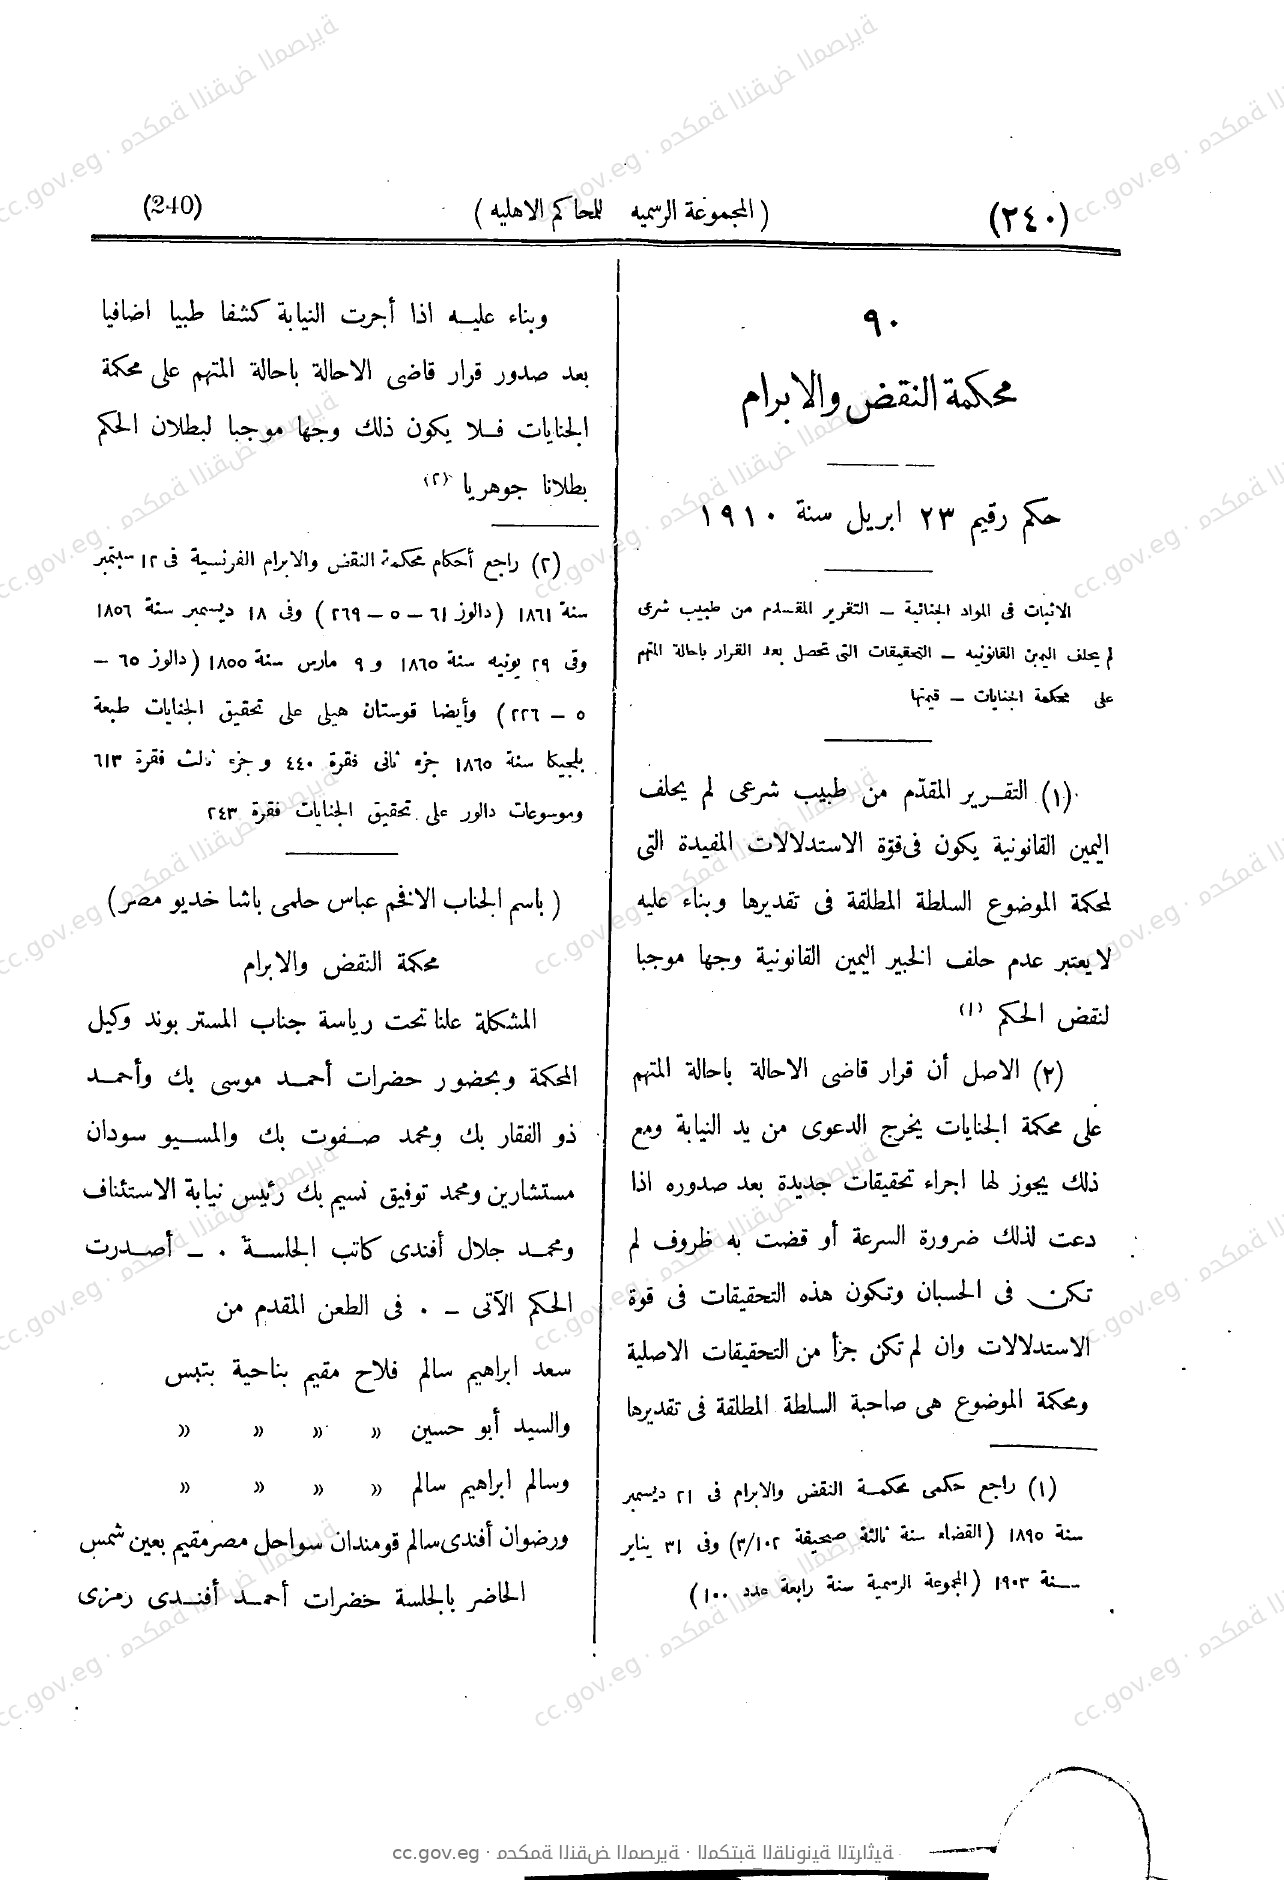 (٢٤٠) (المجموعة الرسميه للمحاكم الاهليه) (240)
٩٠
محكمة النقض والابرام
حكم رقيم ٢٣ ابريل سنة ١٩١٠
الاثبات فى المواد الجنائية – التقرير المقدم من طبيب شرعى
لم يحلف اليمين القانونيه – التحقيقات التى تحصل بعد القرار باحالة المتهم
على محكمة الجنايات – قيمتها
(١) التقرير المقدّم من طبيب شرعى لم يحلف
اليمين القانونية يكون فى قوّة الاستدلالات المفيدة التى
لمحكمة الموضوع السلطة المطلقة فى تقديرها وبناء عليه
لا يعتبر عدم حلف الخبير اليمين القانونية وجها موجبا
لنقض الحكم (١)
(٢) الاصل أن قرار قاضى الاحالة باحالة المتهم
على محكمة الجنايات يخرج الدعوى من يد النيابة ومع
ذلك يجوز لها اجراء تحقيقات جديدة بعد صدوره اذا
دعت لذلك ضرورة السرعة أو قضت به ظروف لم
تكن فى الحسبان وتكون هذه التحقيقات فى قوة
الاستدلالات وان لم تكن جزأ من التحقيقات الاصلية
ومحكمة الموضوع هى صاحبة السلطة المطلقة فى تقديرها
(١) راجع حكمى محكمة النقض والابرام فى ٢١ ديسمبر
سنة ١٨٩٥ (القضاء سنة ثالثة صحيفة ٣/١٠٢) وفى ٣١ يناير
سنة ١٩٠٣ (المجموعة الرسمية سنة رابعة عدد ١٠٠)
وبناء عليه اذا أجرت النيابة كشفا طبيا اضافيا
بعد صدور قرار قاضى الاحالة باحالة المتهم على محكمة
الجنايات فلا يكون ذلك وجها موجبا لبطلان الحكم
بطلانا جوهريا (٢)
(٢) راجع أحكام محكمة النقض والابرام الفرنسية فى ١٢ سبتمبر
سنة ١٨٦١ (دالوز ٦١ – ٥ – ٢٦٩) وفى ١٨ ديسمبر سنة ١٨٥٦
وفى ٢٩ يونيه سنة ١٨٦٥ و ٩ مارس سنة ١٨٥٥ (دالوز ٦٥ –
٥ – ٢٢٦) وأيضا فوستان هيلى على تحقيق الجنايات طبعة
بلجيكا سنة ١٨٦٥ جزء ثانى فقرة ٤٤٠ وجزء ثالث فقرة ٦١٣
وموسوعات دالور على تحقيق الجنايات فقرة ٢٤٣
(باسم الجناب الافخم عباس حلمى باشا خديو مصر)
محكمة النقض والابرام
المشكلة علنا تحت رياسة جناب المستر بوند وكيل
المحكمة وبحضور حضرات أحمد موسى بك وأحمد
ذو الفقار بك ومحمد صفوت بك والمسيو سودان
مستشارين ومحمد توفيق نسيم بك رئيس نيابة الاستئناف
ومحمد جلال أفندى كاتب الجلسة . – أصدرت
الحكم الآتى – . فى الطعن المقدم من
سعد ابراهيم سالم فلاح مقيم بناحية بتبس
والسيد أبو حسين » » » »
وسالم ابراهيم سالم » » » »
ورضوان أفندى سالم قومندان سواحل مصر مقيم بعين شمس
الحاضر بالجلسة حضرات أحمد أفندى رمزى
cc.gov.eg · محكمة النقض المصرية · المكتبة القانونية التراثية